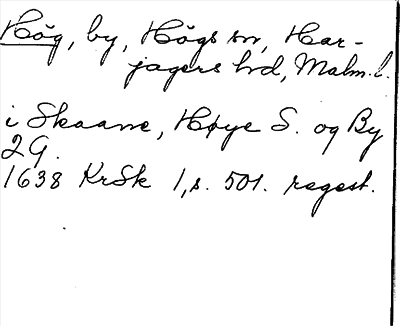 Hög, by, Högs sn, Har-
jagers hd, Malm. l.
i Skaane, Høye S. og By
2 G.
1638 KrSk 1, s. 501. regest.